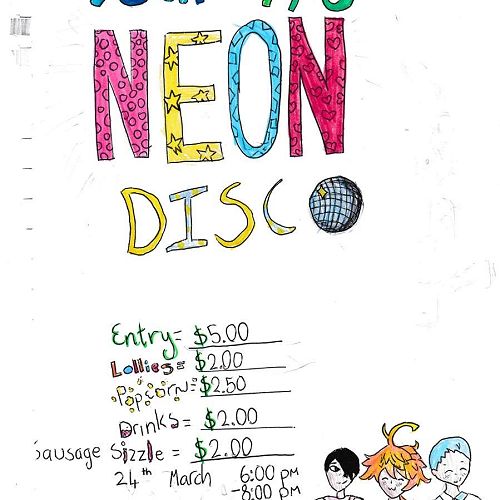 NEON
DISCO
Entry= $5.00
Lollies= $2.00
Popcorn= $2.50
Drinks= $2.00
Sausage Sizzle = $2.00
24th March 6:00 pm
-8:00 pm